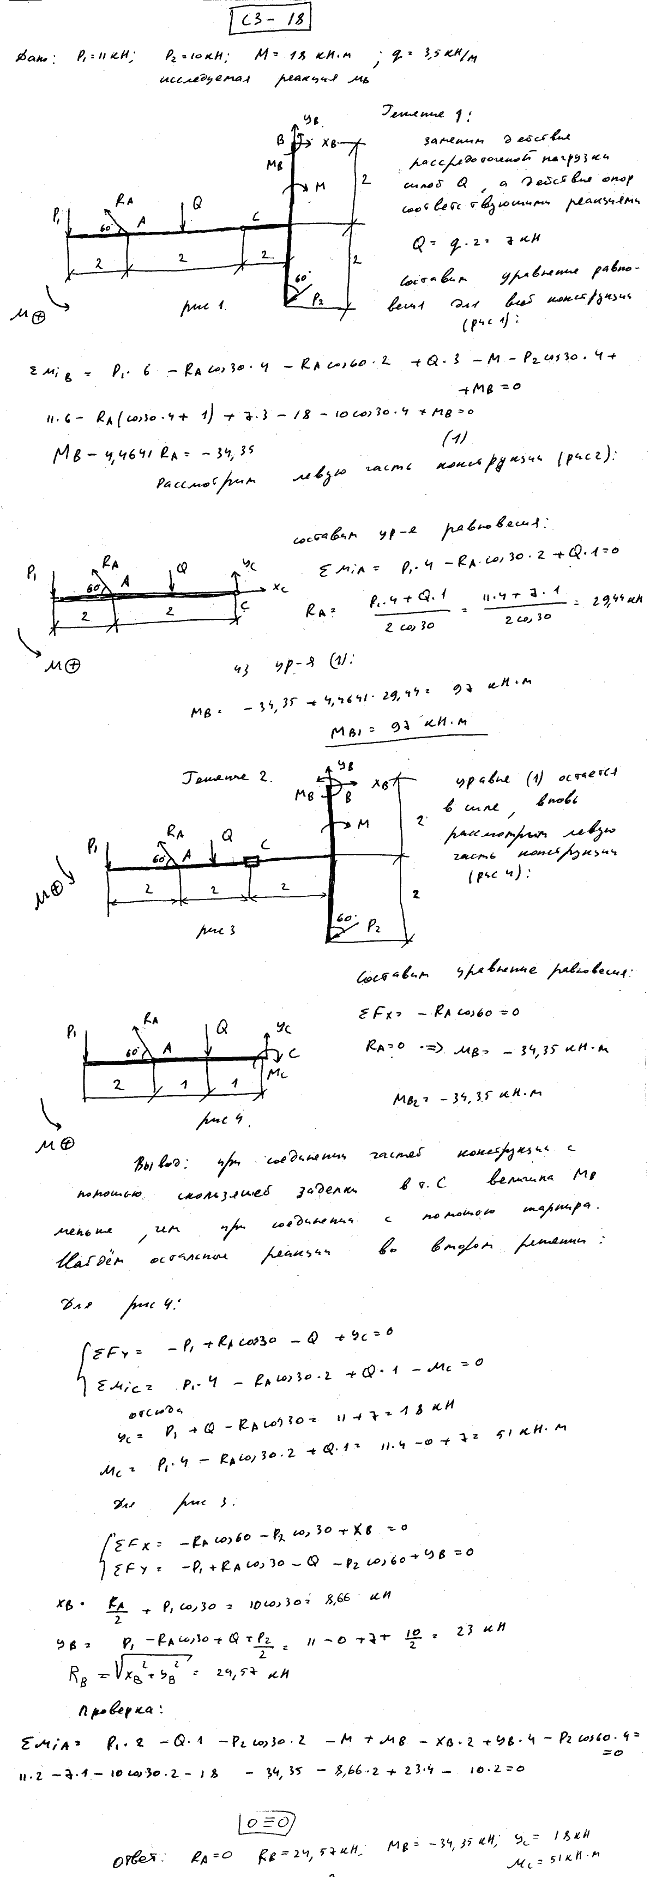 С3-18
Дано: P₁=11кН; P₂=10кН; M=18 кН·м; q=3,5кН/м
исследуемая реакция MB
Решение 1:
заменим действие
рассредоточенной нагрузки
силой Q, а действие опор
соответствующими реакциями
Q = q·2 = 7 кН
составим уравнение равно-
весия для всей конструкции
(рис 1):
YB
B XB
MB
M
P₁ RA 60° A Q C
2 2 2
2
2
60° P₂
M⊕
рис 1.
ΣMiB = P₁·6 - RAcos30·4 - RAcos60·2 + Q·3 - M - P₂cos30·4 +
+MB=0
11·6 - RA(cos30·4+1) + 7·3 - 18 - 10cos30·4 + MB=0
MB - 4,4641 RA = -34,35 (1)
Рассмотрим левую часть конструкции (рис2):
составим ур-е равновесия:
ΣMiA = P₁·4 - RA·cos30·2 + Q·1=0
RA = (P₁·4+Q·1)/(2cos30) = (11·4+7·1)/(2cos30) = 29,44кН
P₁ RA 60° A Q YC XC C
2 2
M⊕
из ур-я (1):
MB = -34,35 + 4,4641·29,44 = 97 кН·м
MB1 = 97 кН·м
Решение 2.
YB
MB B XB
M
P₁ RA 60° A Q C
2 2 2
2
2
60° P₂
M⊕
рис 3
уравне (1) остается
в силе, вновь
рассмотрим левую
часть конструкции
(рис 4):
Составим уравнение равновесия:
ΣFX = -RAcos60=0
RA=0 ⇒ MB = -34,35 кН·м
MB2 = -34,35 кН·м
P₁ RA 60° A Q YC C MC
2 1 1
M⊕
рис 4.
Вывод: при соединении частей конструкции с
помощью скользящей заделки в т.С величина MB
меньше, чем при соединении с помощью шарнира.
Найдём остальные реакции во втором решении:
Для рис 4:
ΣFY = -P₁+RAcos30 - Q + YC=0
ΣMiC = P₁·4 - RAcos30·2 + Q·1 - MC=0
отсюда
YC = P₁ + Q - RAcos30 = 11+7=18 кН
MC = P₁·4 - RAcos30·2 + Q·1 = 11·4-0+7= 51 кН·м
Для рис 3.
ΣFX = -RAcos60 - P₂cos30 + XB=0
ΣFY = -P₁+RAcos30 - Q - P₂cos60+YB=0
XB = RA/2 + P₁cos30 = 10cos30 = 8,66 кН
YB = P₁ - RAcos30 + Q + P₂/2 = 11-0+7+ 10/2 = 23 кН
RB = √(XB²+YB²) = 24,57 кН
Проверка:
ΣMiA = P₁·2 - Q·1 - P₂cos30·2 - M + MB - XB·2 + YB·4 - P₂cos60·4=
=0
11·2 - 7·1 - 10cos30·2 - 18 - 34,35 - 8,66·2 + 23·4 - 10·2=0
0≡0
Ответ: RA=0 RB=24,57кН; MB=-34,35кН; YC = 18кН
MC=51кН·м